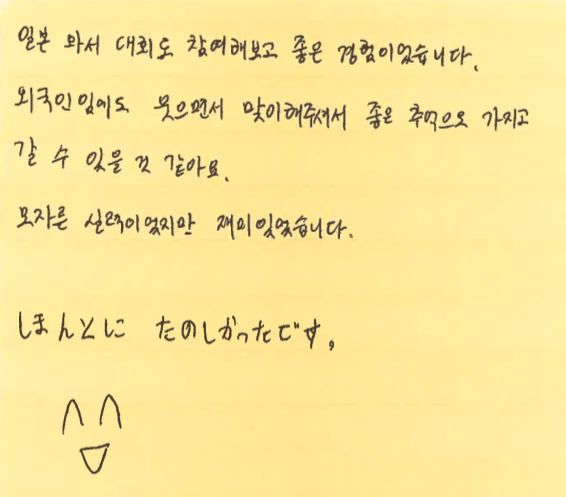 일본 와서 대회도 참여해보고 좋은 경험이었습니다.
외국인임에도 웃으면서 맞이해주셔서 좋은 추억으로 가지고
갈 수 있을 것 같아요.
모자른 실력이었지만 재미있었습니다.
ほんとに たのしかったです。